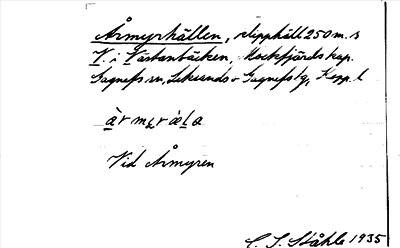 Årmyrhällen, slipphäll 250 m. s
V. i Västanbäcken, Mockfjärds kap.
Gagnefs sn, Leksands o Gagnefs tg, Kopp. l.
Vid Årmyren
C. I. Ståhle 1935